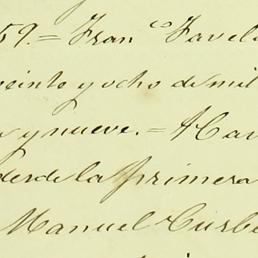 59. = Franco Favela
veinte y ocho de mil
y nueve. = Hav
desde la primera
Manuel Curbe